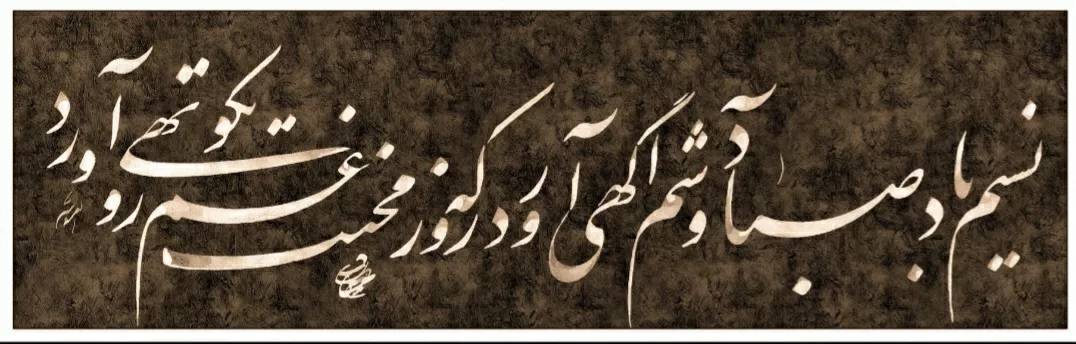 نسیم باد صبا دوشم آگهی آورد
که روز محنت و غم رو بکوتهی آورد